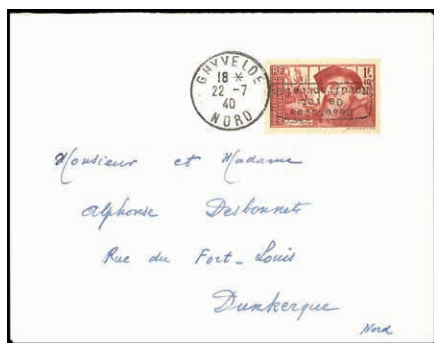 GHYVELDE
18 *
22 -7
40
NORD
1F.
Monsieur et Madame
Alphonse Desbonnets
Rue du Fort-Louis
Dunkerque
Nord